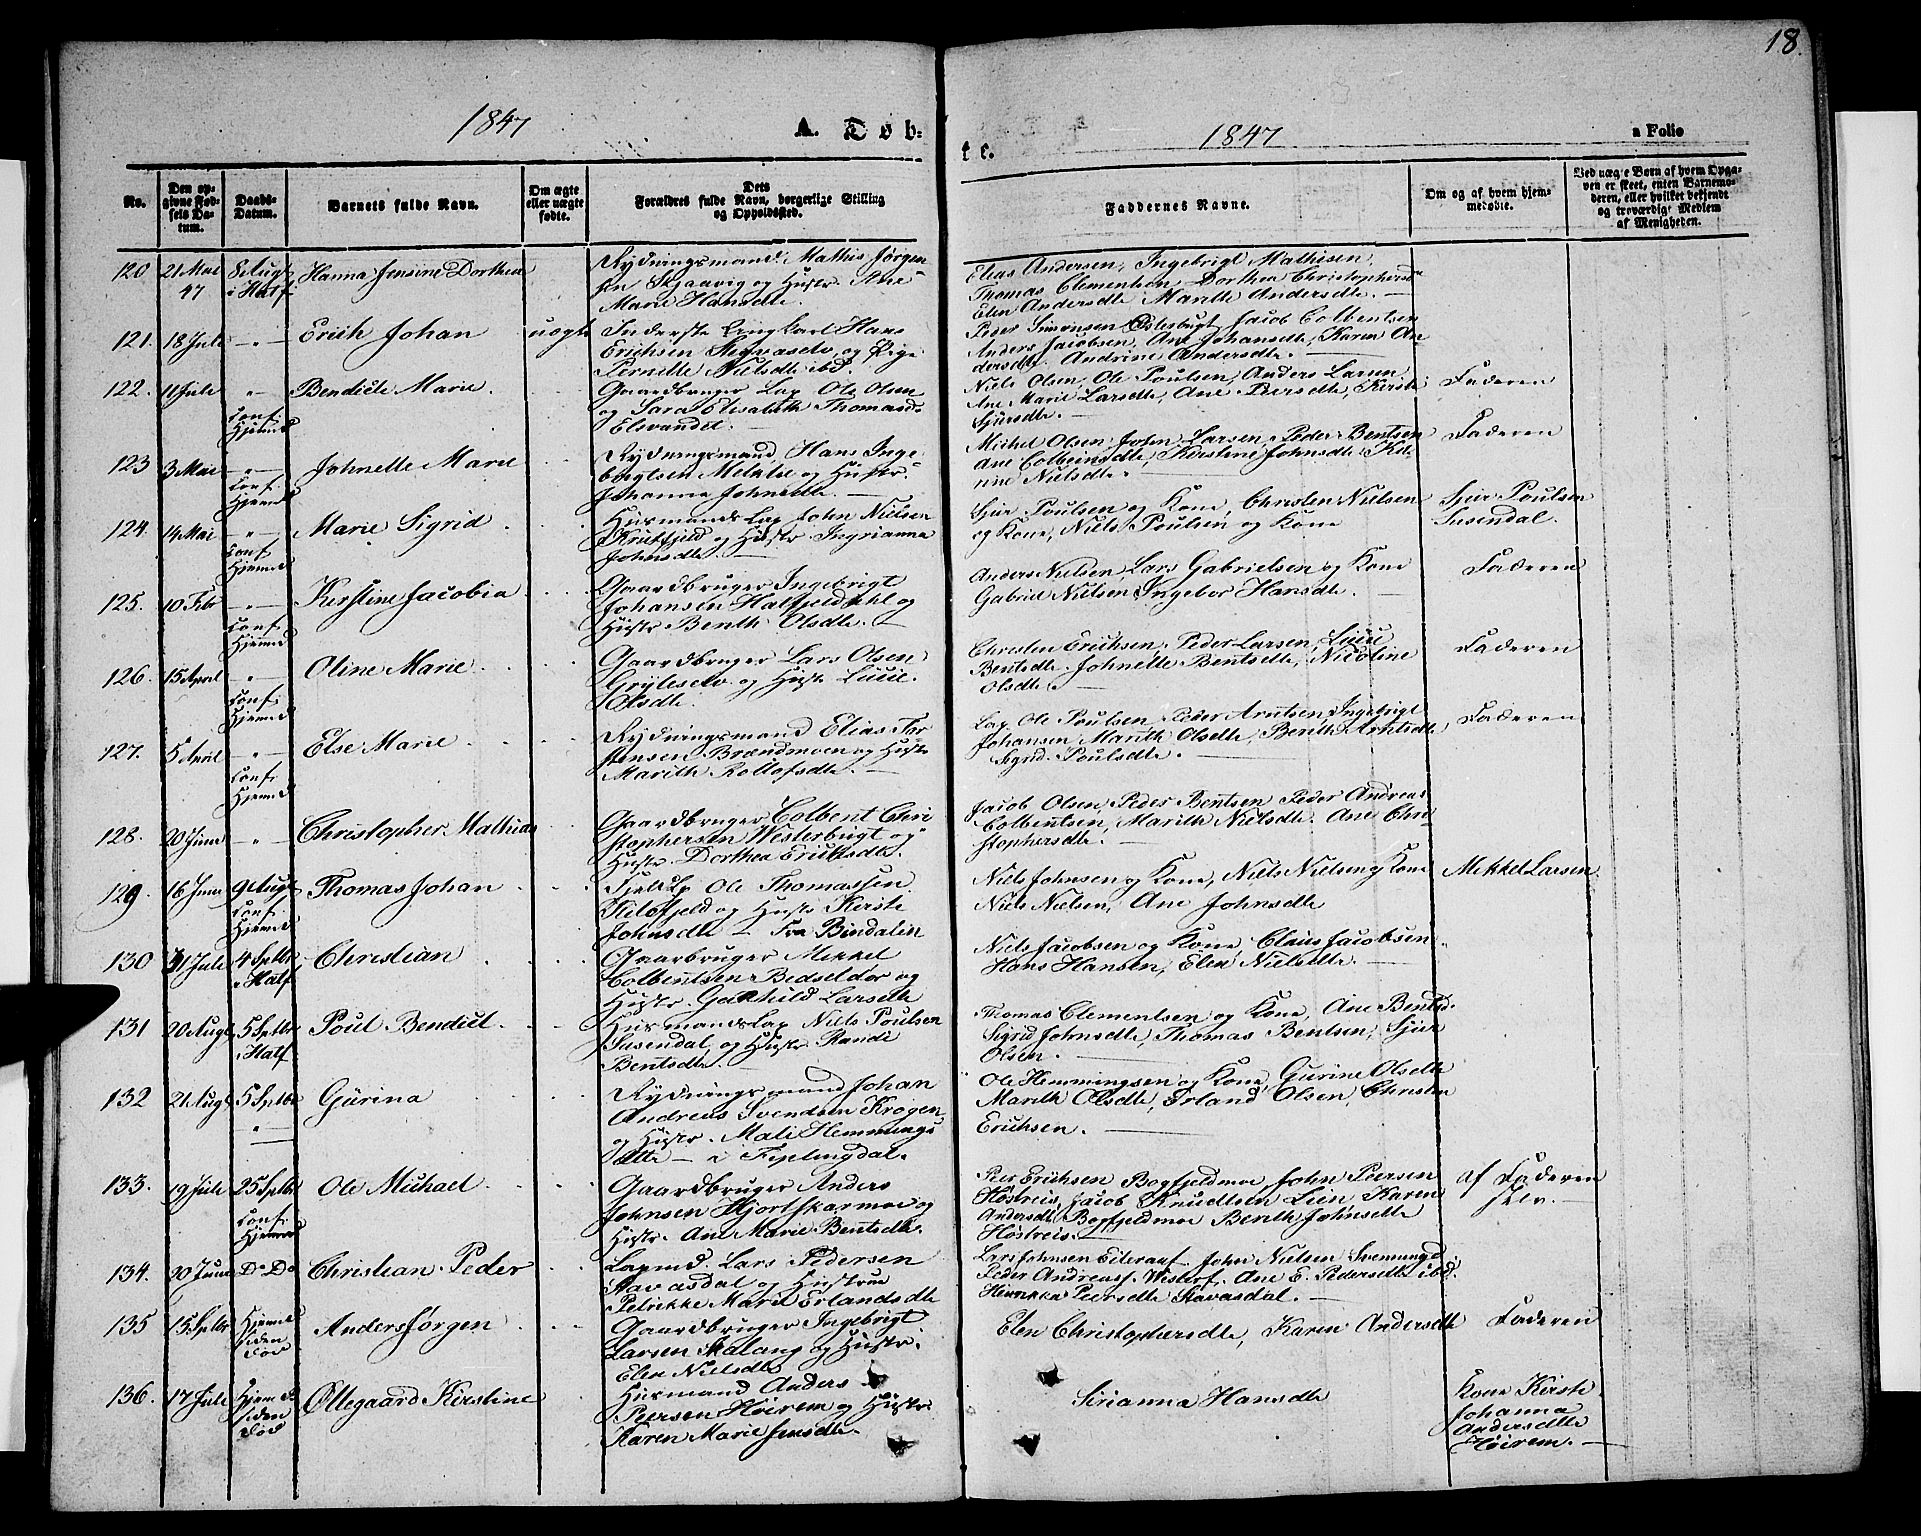 18.
1847
A. Døb-
te.
1847
a Folio
No.
Den op-
givne Fød-
sels Da-
tum.
Daabs-
Datum.
Barnets fulde Navn.
Om ægte
eller uægte
fødte.
Dets
Forældres fulde Navn, borgerlige Stilling
og Opholdssted.
Faddernes Navne.
Om og af hvem hjem-
medøbte.
Ved uægte Børn af hvem Opga-
ven er skeet, enten Barnemo-
deren, eller hvilket bekjendt
og troværdigt Medlem
af Menigheden.
120 21 Mai 47 8 Aug i Hatf Hanna Jensine Dorthea
Rydningsmand Mathis Jørgen
sen Skjaavig og Hustr Ane
Marie Hansdtr.
Elias Andersen, Ingebrigt Mathisen,
Thomas Clementsen, Dorthea Christophersd
Elen Andersdtr Marith Andersdtr.
121. 18 Juli Erich Johan uægte
Inderste Ungkarl Hans
Erichsen og
Nielsdtr ibd.
Peder Simonsen Østerbugt Jacob Colbentsen
Anders Jacobsen, Ane Johansdtr, Karen An-
dersdtr. Andrine Andersdtr.
122. 11 Juli Conf. Hjemmed Bendicte Marie.
Gaardbruger Lap Ole Olsen
og Sara Elisabeth Thomasd.
Elsvandet.
Niels Olsen, Ole Poulsen, Anders Larsen
Ane Marie Larsdtr, Ane Peersdtr, Kirsti
Sjursdtr.
Faderen
123 3 Mai Conf. Hjemmed Johnette Marie
Rydningsmand Hans Inge
brigtsen og Hustr.
Johanna Johnsdtr.
Michel Olsen, John Larsen, Peder Bentsen
Ane Colbeinsdtr, Kirstine Johnsdtr
Nielsdtr.
Faderen
124. 14 Mai Conf. Hjemmed Marie Sigrid
Huusmands Lap John Nielsen
Krutfjeld og Hustr Ingrianna
Johnsdtr
Sjur Poulsen og Kone, Christen Nielsen
og Kone, Niels Poulsen og Kone
Sjur Poulsen
Susendal.
125. 10 Febr Conf. Hjemmed Kirstine Jacobia
Gaardbruger Ingebrigt
Johansen Hatfjelddahl og
Hustr Benth Olsdtr.
Anders Nielsen, Lars Gabrielsen og Kone
Gabriel Nielsen Ingebor Hansdtr.
Faderen
126. 15 April Conf. Hjemmed Oline Marie
Gaardbruger Lars Olsen
og Hustr Lucie
Olsdtr.
Christen Erichsen, Peder Larsen, Lucie
Bentsdtr. Johnette Bentsdtr, Nicoline
Olsdtr.
Faderen
127. 5 April Conf. Hjemmed Else Marie
Rydningsmand Elias Tor
stensen Brændmoen og Hustr
Marith Rollofsdtr.
Lap Ole Poulsen, Peder Arntsen, Ingebrigt
Johansen Marith Olsdtr, Berith Arntsdtr
Sigrid Poulsdtr.
Faderen
128. 20 Juni Christopher Mathias
Gaardbruger Colbent Chri
stophersen Westerbugt og
Hustr. Dorthea Erichsdtr.
Jacob Olsen, Peder Bentsen Peder Andreas
Colbentsen, Marith Nielsdtr. Ane Chri-
stophersdtr.
129 16 Juni 9 Aug Conf. Hjemmed Thomas Johan
Fjeld Lp Ole Thomassen
og Hustr Kirsti
Johnsdtr - Fra Bindalen
Niels Johnsen og Kone, Niels Nielsen og Kone
Niels Nielsen, Ane Johnsdtr
Mekkel Larsen
130 31 Juli 4 Sptbr i Hatf Christian
Gaarbruger Mekkel
Colbentsen Bedseldor og
Hustr. Gunhild Larsdtr
Niels Jacobsen og Kone, Claus Jacobsen
Hans Hansen, Elen Nielsdtr.
131 20 Aug 5 Sptbr i Hatf Poul Bendict
Huusmands Lap Niels Poulsen
Susendal og Hustr Randi
Bentsdtr.
Thomas Clementsen og Kone, Ane Bentsd.
Sigrid Johnsdtr, Thomas Bentsen, Sjur
Olsen.
132 21 Aug 5 Sptbr Gurina
Rydningsmand Johan
Andreas Svendsen Krogen
og Hustr. Mali Hemmings
dtr - i Fiplingdal.
Ole Hemmingsen og Kone, Gurine Olsdtr
Marith Olsdtr, Erland Olsen Christen
Erichsen.
133. 19 Juli 25 Sptbr Conf. Hjemmed Ole Michael
Gaardbruger Anders
Johnsen Hjortskarmoe og
Hustr. Ane Marie Bentsdtr.
Peer Erichsen Bogfjeldmoe John Peersen
Jacob Knudtsen Lien Karen
Andersdtr Bogfjeldmoe Berith Johnsdtr
af Faderen
selv.
134. 30 Juni Do Do Christian Peder
Lapmd. Lars Pedersen
Stavasdal og Hustrue
Petrikke Marie Erlandsdtr
Lars Johnsen Eiteraaf. John Nielsen Svenningd
Peder Andreass. Westerf. Ane E. Pedersdtr ibd.
Henrikka Peersdtr Stavasdal.
135 15 Sptbr Hjemmed siden død Anders Jørgen
Gaardbruger Ingebrigt
Larsen og Hustr.
Elen Nielsdtr
Elen Christophersdtr, Karen Andersdtr
Faderen
136. 17 Juli Hjemmed siden død Øllegaard Kirstine
Huusmand Anders
Peersen Høirem og Hustr.
Karen Marie Jensdtr.
Sirianna Hansdtr
Kone Kirsti
Johanna
Andersdtr
Høirem.